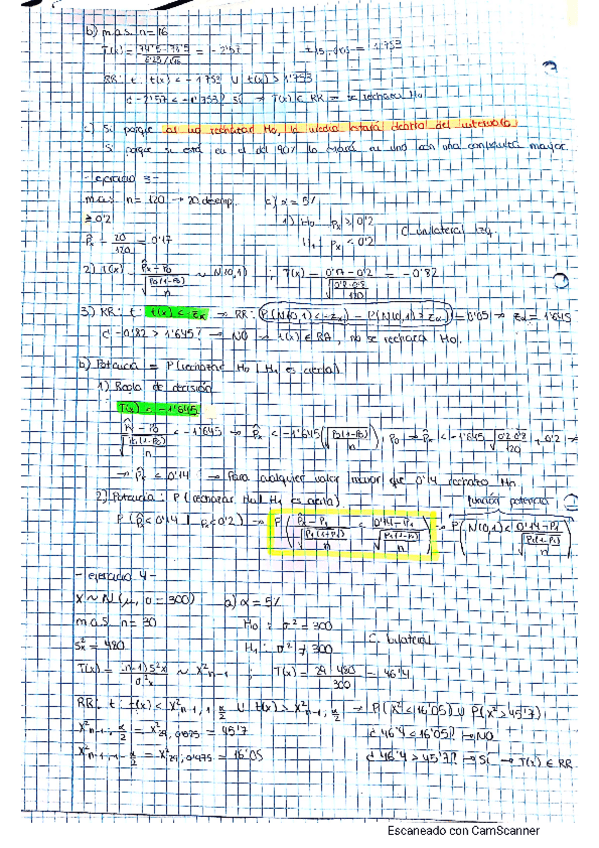 b) m.a.s. n=16
T(x) = 74'5 - 76'5 / 0'23/√16 = -2'57
RR: t: t(x) < -1'753 U t(x) > 1'753
¿ -2'57 < -1'753? Sí → T(x) ∈ RR → se rechaza Ho
c) Sí porque al no rechazar Ho, la media estará dentro del intervalo.
Sí porque si está en el del 90% lo estará en uno con una confianza mayor.
- ejercicio 3 -
m.a.s. n = 120 → 20 desemp. c) α = 5%
≥ 0'2 1) Ho: Px ≥ 0'2
H1: Px < 0'2 C. unilateral izq.
P̂x = 20/120 = 0'17
2) T(x) = P̂x - Po / √(Po(1-Po)/n) ~ N(0,1) ; T(x) = 0'17 - 0'2 / √(0'2·0'8/120) = -0'82
3) RR: t: t(x) < -zα → RR: P(N(0,1) < -zα) = P(N(0,1) > zα) = 0'05 → zα = 1'645
¿ -0'82 > 1'645? → NO → t(x) ∈ RA, no se rechaza Ho.
b) Potencia = P(rechazar Ho | H1 es cierta)
1) Regla de decisión
T(x) < -1'645
P̂x - Po / √(Po(1-Po)/n) < -1'645 → P̂x < -1'645 √(Po(1-Po)/n) + Po → P̂x < -1'645 √(0'2·0'8/120) + 0'2 →
→ P̂x < 0'14 → Para cualquier valor menor que 0'14 rechazo Ho
2) Potencia: P(rechazar Ho | H1 es cierta) función potencia
P(P̂x < 0'14 | Px < 0'2) → P(P̂x - P1 / √(P1(1-P1)/n) < 0'14 - P1 / √(P1(1-P1)/n)) → P(N(0,1) < 0'14 - P1 / √(P1(1-P1)/n))
- ejercicio 4 -
X ~ N(μ, σ = 300) a) α = 5%
m.a.s. n = 30 Ho: σ² = 300
S²x = 480 H1: σ² ≠ 300 C. bilateral
T(x) = (n-1)S²x / σ²x ~ X²n-1 ; T(x) = 29·480 / 300 = 46'4
RR: t: t(x) < X²n-1, 1-α/2 U t(x) > X²n-1, α/2 → P(X² < 16'05) U P(X² > 45'7)
X²n-1, α/2 = X²29, 0'025 = 45'7 ¿ 46'4 < 16'05? → NO
X²n-1, 1-α/2 = X²29, 0'975 = 16'05 ¿ 46'4 > 45'7? → Sí → T(x) ∈ RR
Escaneado con CamScanner